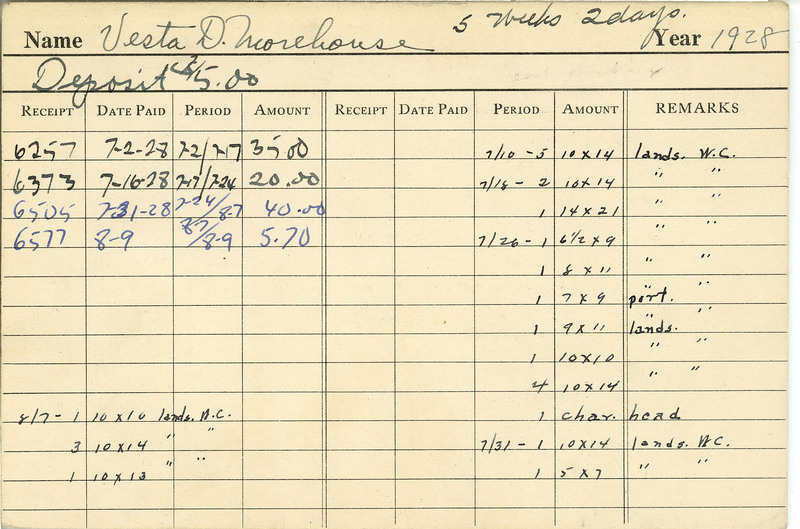 Name Vesta D. Morehouse 5 Weeks 2 days. Year 1928
Deposit 5.00
RECEIPT DATE PAID PERIOD AMOUNT RECEIPT DATE PAID PERIOD AMOUNT REMARKS
6257 7-2-28 7-2/7-17 35.00 7/10 - 5 10 x 14 lands. W.C.
6373 7-16-28 7-17/7-24 20.00 7/18 - 2 10 x 14 " "
6505 7-31-28 7-24/8-7 40.00 1 14 x 21 " "
6577 8-9 8-7/8-9 5.70 7/26 - 1 6 1/2 x 9 " "
1 8 x 11 " "
1 7 x 9 port. "
1 9 x 11 lands. "
1 10 x 10 " "
4 10 x 14 " "
8/7 - 1 10 x 10 lands. W.C. 1 char. head
3 10 x 14 " " 7/31 - 1 10 x 14 lands. W.C.
1 10 x 13 " " 1 5 x 7 " "